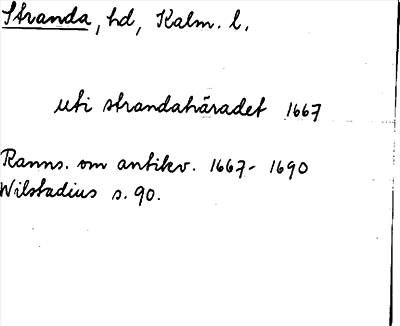 Stranda, hd, Kalm. l.
uti strandahäradet 1667
Ranns. om antikv. 1667-1690
Wilstadius s. 90.